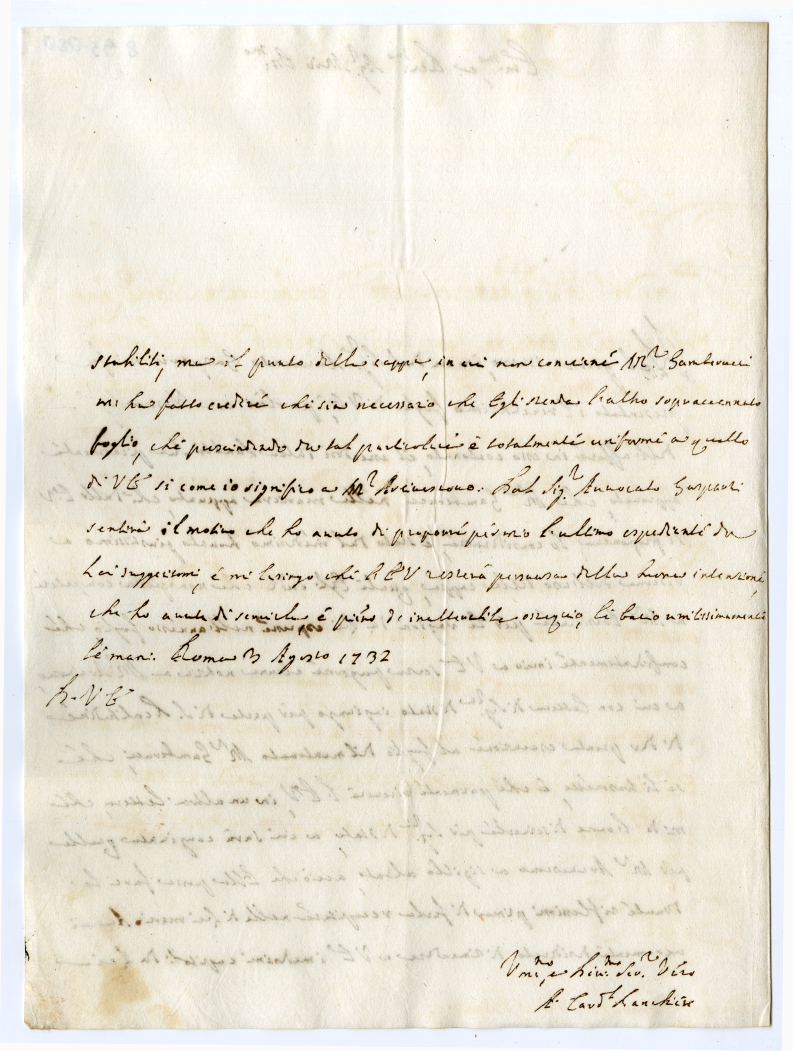 stabiliti, ma il punto delle cappe, in cui non conviene M.r Gamberucci
mi ha fatto credere che sia necessario che Egli stenda l'altro sopraccennato
foglio, che prescindendo da tal particolare è totalmente uniforme a quello
di V E si come io significo a M.r Arcivescovo. Dal Sig.r Avvocato Gasparri
sentirà il motivo che ho avuto di proporre per mio l'ultimo espediente da
Lei suggeritomi, e mi lusingo che l'E V resterà persuasa della buona intenzione,
che ho avuta di servirla e pieno di inalterabile ossequio, le bacio umilissimamente
le mani. Roma 3 Agosto 1732
D. V E
Um.mo, e Div.mo Ser.r Vero
A. Card.l Banchieri